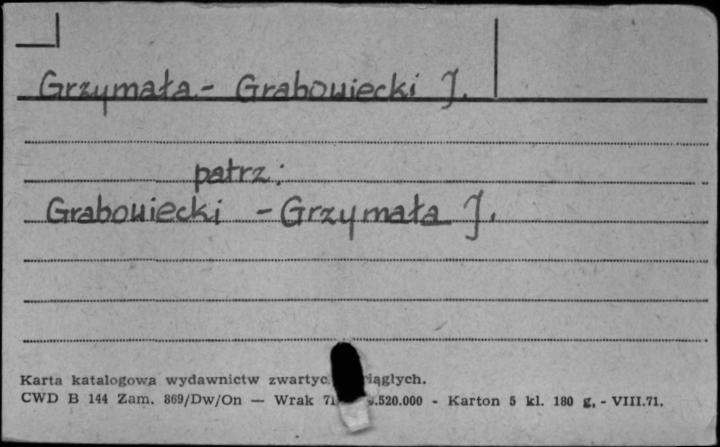 Grzymała - Grabowiecki J.
patrz:
Grabowiecki - Grzymała J.
Karta katalogowa wydawnictw
CWD B 144 Zam. 869/Dw/On — Wrak - Karton 5 kl. 180 g, - VIII.71.